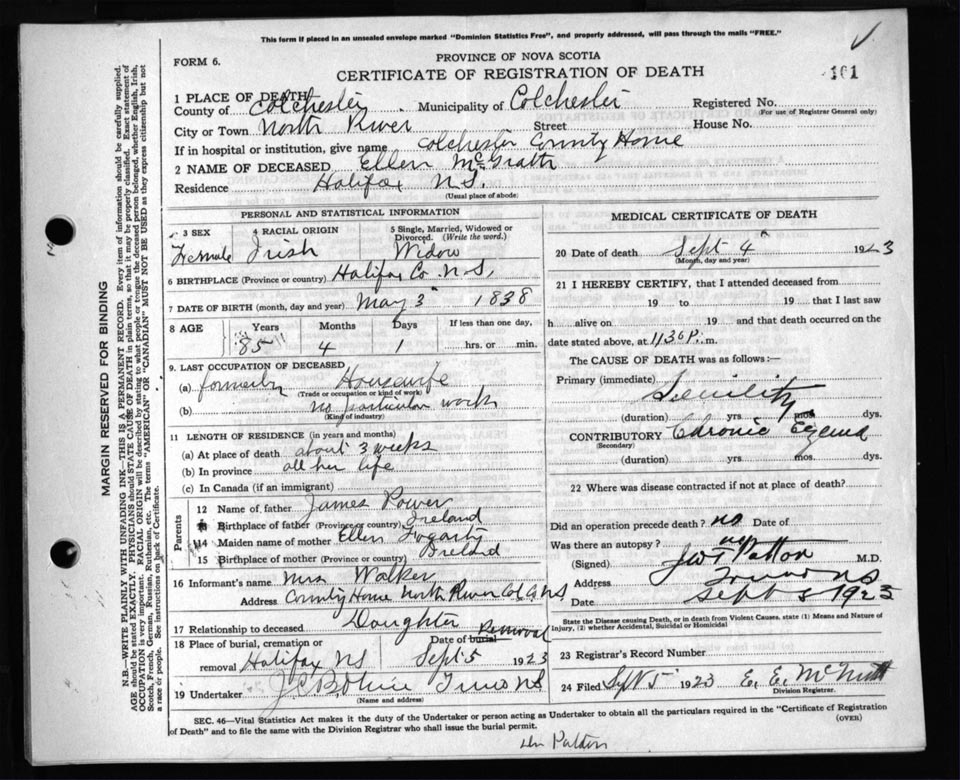 This form if placed in an unsealed envelope marked "Dominion Statistics Free", and properly addressed, will pass through the mails "FREE."
FORM 6.
PROVINCE OF NOVA SCOTIA
CERTIFICATE OF REGISTRATION OF DEATH
161
1 PLACE OF DEATH
County of Colchester. Municipality of Colchester Registered No.
(For use of Registrar General only)
City or Town North River Street House No.
If in hospital or institution, give name Colchester County Home
2 NAME OF DECEASED Ellen McGrath
Residence Halifax N.S.
(Usual place of abode)
PERSONAL AND STATISTICAL INFORMATION
3 SEX 4 RACIAL ORIGIN 5 Single, Married, Widowed or Divorced. (Write the word.)
Female Irish Widow
6 BIRTHPLACE (Province or country) Halifax Co. N.S.
7 DATE OF BIRTH (month, day and year) May 3" 1838
8 AGE Years Months Days If less than one day,
85 4 1 hrs. or min.
9. LAST OCCUPATION OF DECEASED
(a) formerly Housewife
(Trade or occupation or kind of work)
(b) no particular work
(Kind of industry)
11 LENGTH OF RESIDENCE (in years and months)
(a) At place of death about 3 weeks
(b) In province all her life
(c) In Canada (if an immigrant)
Parents
12 Name of father James Power
Birthplace of father (Province or country) Ireland
14 Maiden name of mother Ellen Fogarty
15 Birthplace of mother (Province or country) Ireland
16 Informant's name Mrs Walker
Address County Home North River Col. Co NS
17 Relationship to deceased Daughter
18 Place of burial, cremation or removal Halifax NS Date of burial Removal Sept 5 1923
19 Undertaker
(Name and address)
MEDICAL CERTIFICATE OF DEATH
20 Date of death Sept 4" 1923
(Month, day and year)
21 I HEREBY CERTIFY, that I attended deceased from
19 to 19 that I last saw
h alive on 19 and that death occurred on
date stated above, at 11.30 P. m.
The CAUSE OF DEATH was as follows:—
Primary (immediate) Senility
(duration) yrs mos dys.
CONTRIBUTORY Chronic Eczema
(Secondary)
(duration) yrs mos dys.
22 Where was disease contracted if not at place of death?
Did an operation precede death? no Date of
Was there an autopsy? no
(Signed) Patton M.D.
Address Truro NS
Date Sept 5 1923
State the Disease causing Death, or in death from Violent Causes, state (1) Means and Nature of Injury, (2) whether Accidental, Suicidal or Homicidal
23 Registrar's Record Number
24 Filed Sept 5 1923 E. E. McNutt
Division Registrar.
SEC. 46—Vital Statistics Act makes it the duty of the Undertaker or person acting as Undertaker to obtain all the particulars required in the "Certificate of Registration of Death" and to file the same with the Division Registrar who shall issue the burial permit. (OVER)
Dr Patton
MARGIN RESERVED FOR BINDING
N.B.—WRITE PLAINLY WITH UNFADING INK—THIS IS A PERMANENT RECORD. Every item of information should be carefully supplied.
AGE should be stated EXACTLY. PHYSICIANS should STATE CAUSE OF DEATH in plain terms, so that it may be properly classified. Exact statement of
OCCUPATION is very important. RACIAL ORIGIN will be described by stating to what people or tongue the deceased person belonged, whether English, Irish,
Scotch, French, German, Russian, Ruthenian, etc. The terms "AMERICAN" OR "CANADIAN" MUST NOT BE USED as they express citizenship but not
a race or people. See instructions on back of Certificate.